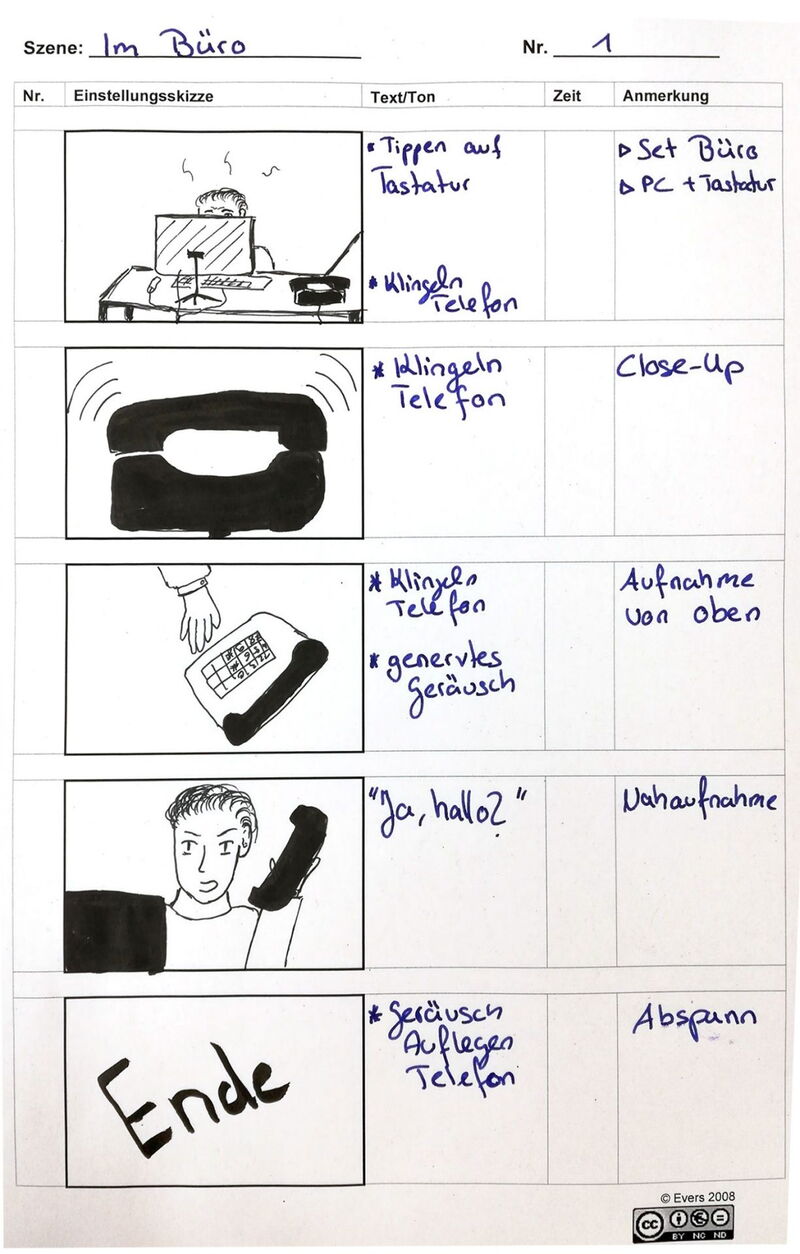 Szene: Im Büro
Nr. 1
Nr. Einstellungsskizze Text/Ton Zeit Anmerkung
* Tippen auf
Tastatur
* Klingeln
Telefon
▷ Set Büro
▷ PC + Tastatur
* Klingeln
Telefon
Close-Up
* Klingeln
Telefon
* genervtes
Geräusch
Aufnahme
von oben
"Ja, hallo?"
Nahaufnahme
Ende
* Geräusch
Auflegen
Telefon
Abspann
© Evers 2008
cc
BY NC ND